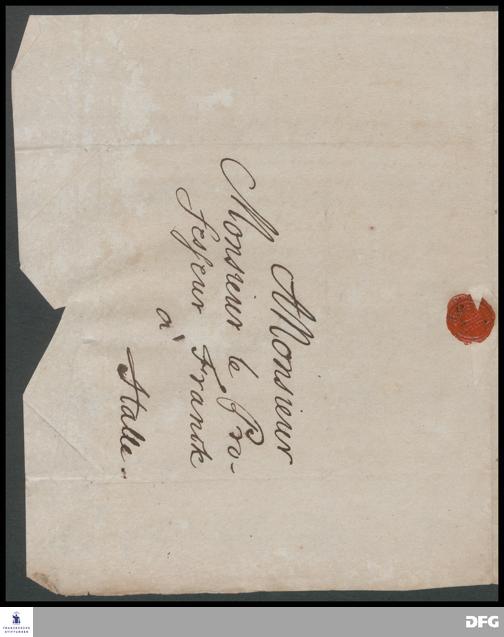 A Monsieur
Monsieur le Pro-
fesseur Franck
à
Halle.
FRANCKESCHE
STIFTUNGEN
DFG